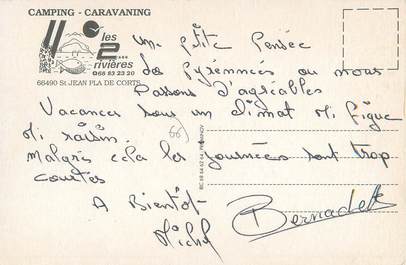 CAMPING - CARAVANING
les
2...
rivières
68 83 23 20
66490 St JEAN PLA DE CORTS
Une petite Pensée
des Pyrénnées ou nous
Passons d'agréables
Vacances sous un Climat Mi figue
Mi raisin,
Malgrés cela les journées sont trop
courtes
A Bientôt
Michel
Bernadette
66